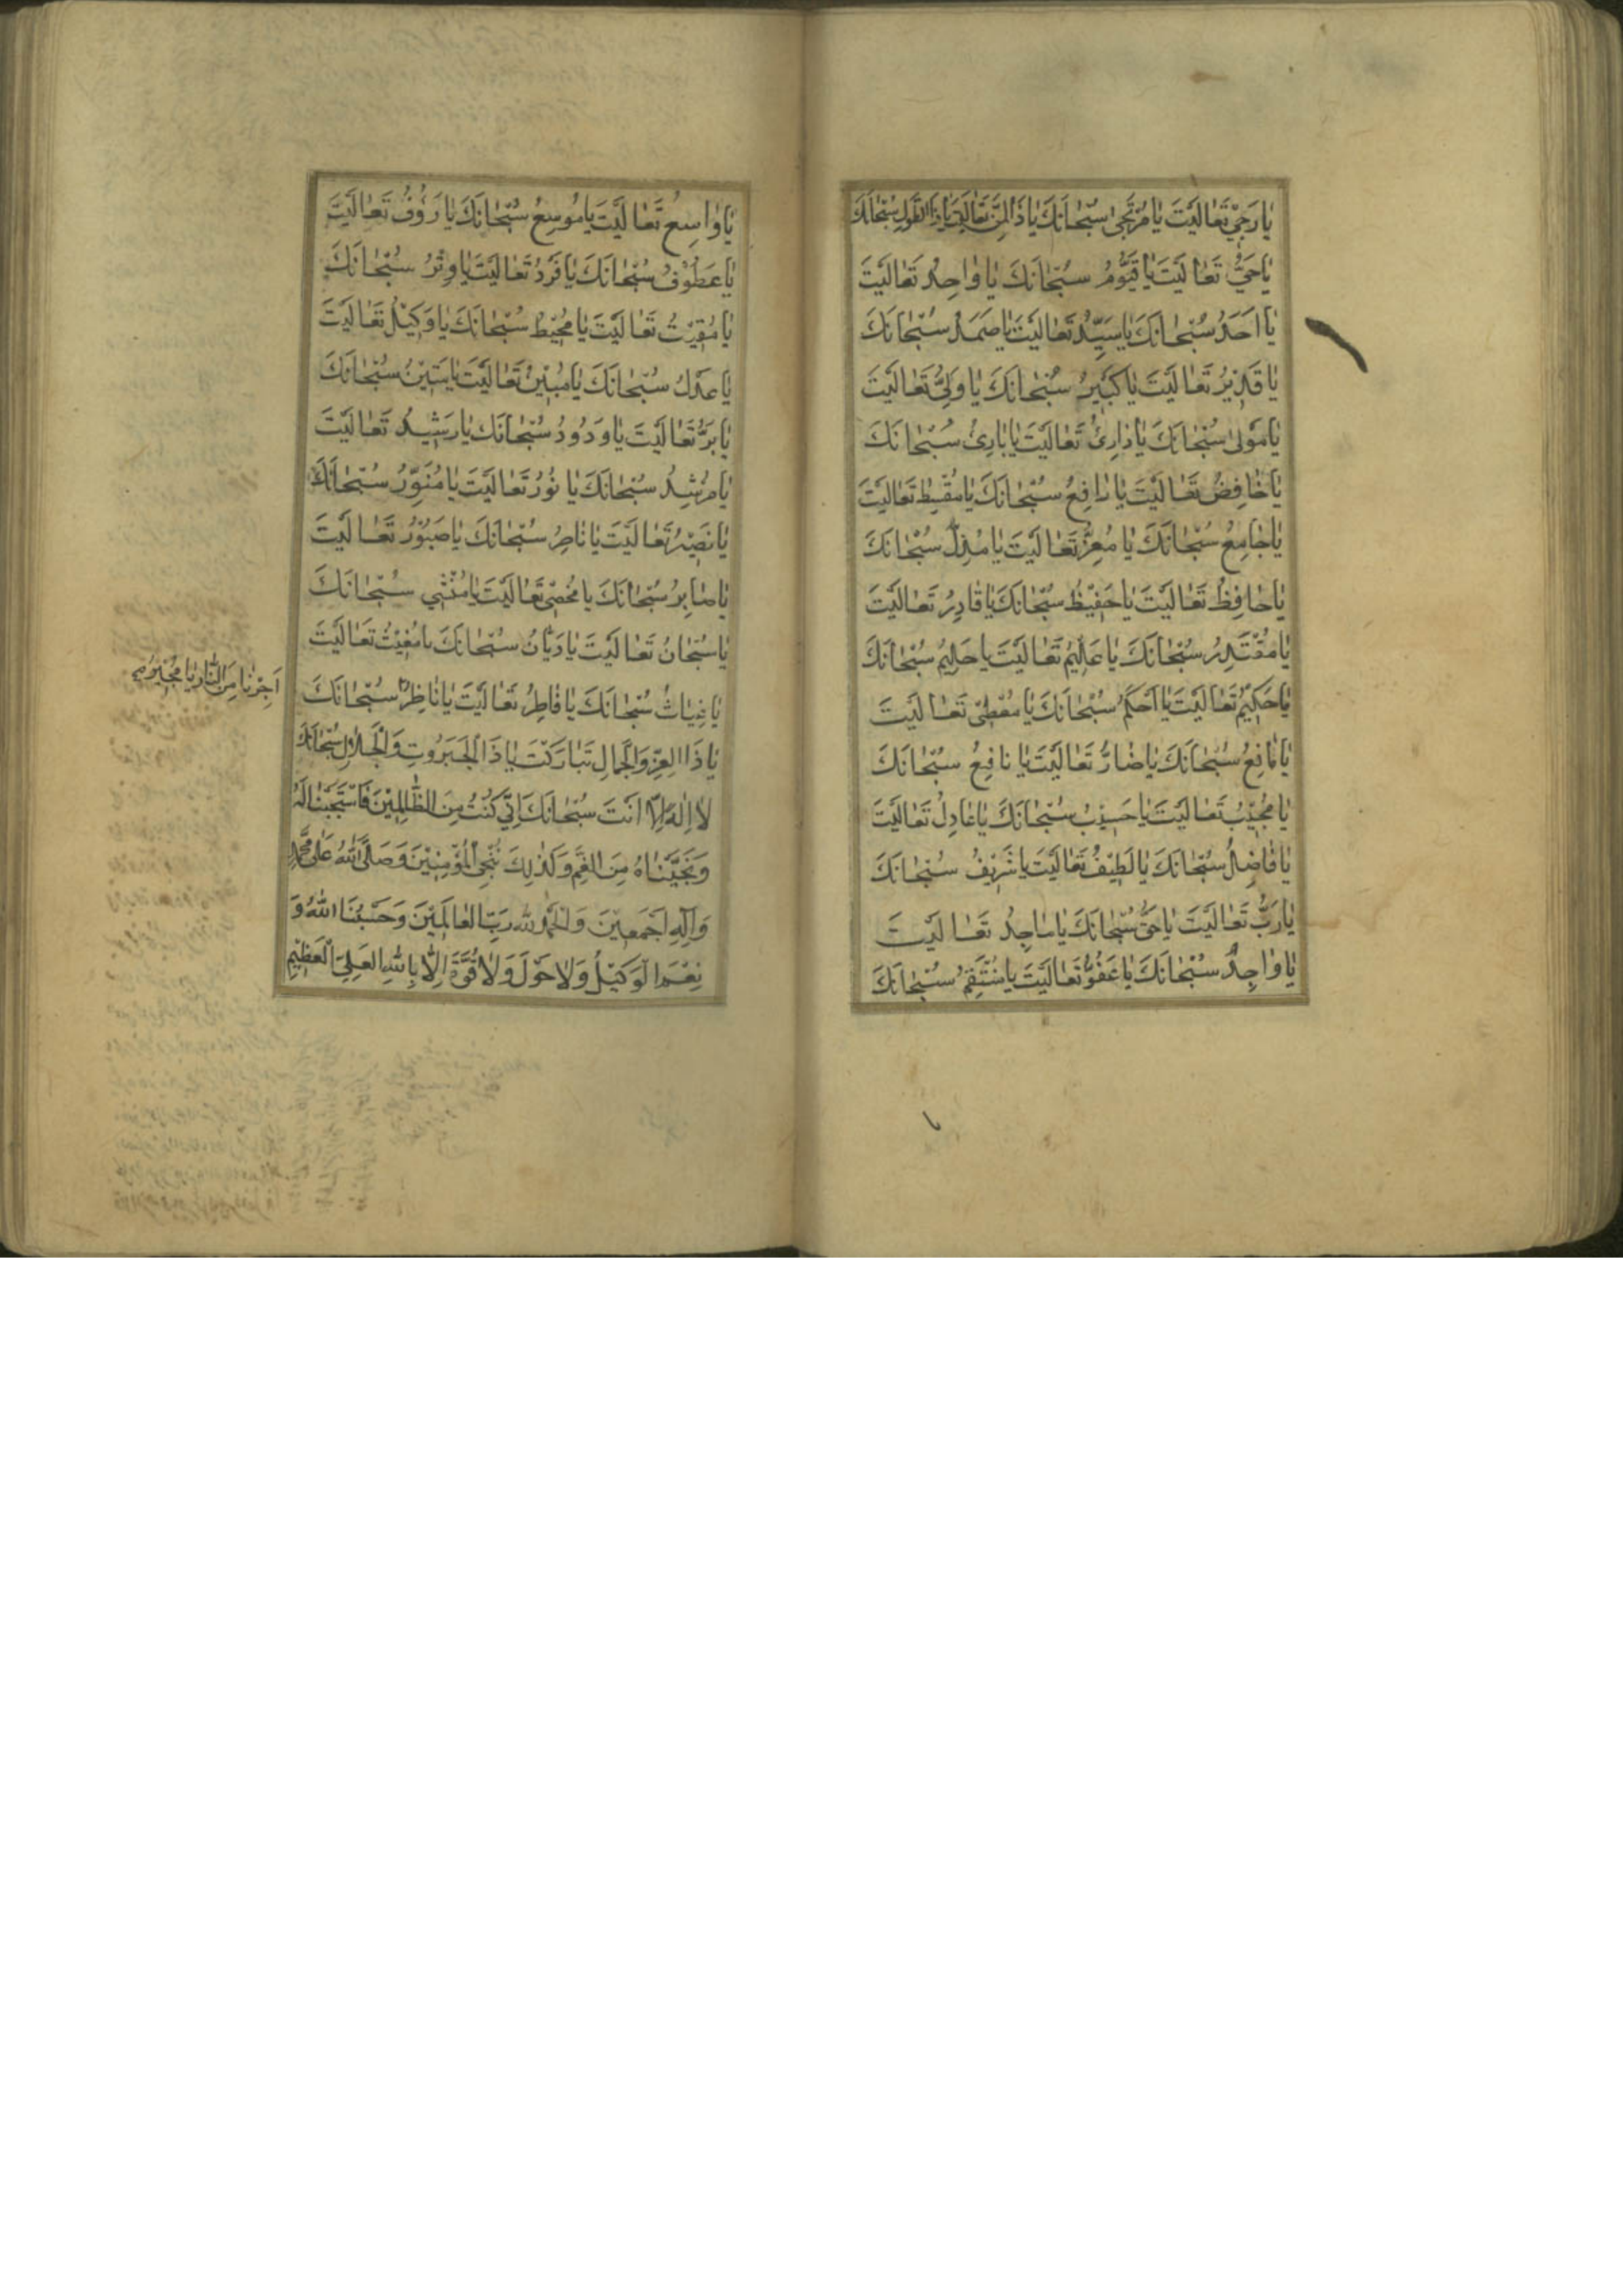 يَا رَجِيُّ تَعَالَيْتَ يَا مُرْتَجَى سُبْحَانَكَ يَا ذَا الْمَنِّ تَعَالَيْتَ يَا ذَا الطَّوْلِ سُبْحَانَكَ
يَا حَيُّ تَعَالَيْتَ يَا قَيُّومُ سُبْحَانَكَ يَا وَاحِدُ تَعَالَيْتَ
يَا اَحَدُ سُبْحَانَكَ يَا سَيِّدُ تَعَالَيْتَ يَا صَمَدُ سُبْحَانَكَ
يَا قَدِيْرُ تَعَالَيْتَ يَا كَبِيْرُ سُبْحَانَكَ يَا وَلِيُّ تَعَالَيْتَ
يَا مَوْلٰى سُبْحَانَكَ يَا ذَارِئُ تَعَالَيْتَ يَا بَارِئُ سُبْحَانَكَ
يَا خَافِضُ تَعَالَيْتَ يَا رَافِعُ سُبْحَانَكَ يَا مُقْسِطُ تَعَالَيْتَ
يَا جَامِعُ سُبْحَانَكَ يَا مُعِزُّ تَعَالَيْتَ يَا مُذِلُّ سُبْحَانَكَ
يَا حَافِظُ تَعَالَيْتَ يَا حَفِيْظُ سُبْحَانَكَ يَا قَادِرُ تَعَالَيْتَ
يَا مُقْتَدِرُ سُبْحَانَكَ يَا عَلِيْمُ تَعَالَيْتَ يَا حَلِيْمُ سُبْحَانَكَ
يَا حَكِيْمُ تَعَالَيْتَ يَا اَحْكَمُ سُبْحَانَكَ يَا مُعْطِيْ تَعَالَيْتَ
يَا مَانِعُ سُبْحَانَكَ يَا ضَارُّ تَعَالَيْتَ يَا نَافِعُ سُبْحَانَكَ
يَا مُجِيْبُ تَعَالَيْتَ يَا حَسِيْبُ سُبْحَانَكَ يَا عَادِلُ تَعَالَيْتَ
يَا فَاضِلُ سُبْحَانَكَ يَا لَطِيْفُ تَعَالَيْتَ يَا شَرِيْفُ سُبْحَانَكَ
يَا رَبُّ تَعَالَيْتَ يَا حَقُّ سُبْحَانَكَ يَا مَاجِدُ تَعَالَيْتَ
يَا وَاجِدُ سُبْحَانَكَ يَا عَفُوُّ تَعَالَيْتَ يَا مُنْتَقِمُ سُبْحَانَكَ
يَا وَاسِعُ تَعَالَيْتَ يَا مُوسِعُ سُبْحَانَكَ يَا رَؤُفُ تَعَالَيْتَ
يَا عَطُوْفُ سُبْحَانَكَ يَا فَرْدُ تَعَالَيْتَ يَا وِتْرُ سُبْحَانَكَ
يَا مُقِيْتُ تَعَالَيْتَ يَا مُحِيْطُ سُبْحَانَكَ يَا وَكِيْلُ تَعَالَيْتَ
يَا عَدْلُ سُبْحَانَكَ يَا مُبِيْنُ تَعَالَيْتَ يَا مَتِيْنُ سُبْحَانَكَ
يَا بَرُّ تَعَالَيْتَ يَا وَدُودُ سُبْحَانَكَ يَا رَشِيْدُ تَعَالَيْتَ
يَا مُرْشِدُ سُبْحَانَكَ يَا نُوْرُ تَعَالَيْتَ يَا مُنَوِّرُ سُبْحَانَكَ
يَا نَصِيْرُ تَعَالَيْتَ يَا نَاصِرُ سُبْحَانَكَ يَا صَبُوْرُ تَعَالَيْتَ
يَا صَابِرُ سُبْحَانَكَ يَا مُحْصِيْ تَعَالَيْتَ يَا مُنْشِي سُبْحَانَكَ
يَا سُبْحَانُ تَعَالَيْتَ يَا دَيَّانُ سُبْحَانَكَ يَا مُغِيْثُ تَعَالَيْتَ
يَا غِيَاثُ سُبْحَانَكَ يَا فَاطِرُ تَعَالَيْتَ يَا نَاظِرُ سُبْحَانَكَ
اَجِرْنَا مِنَ النَّارِ يَا مُجِيْرُ
يَا ذَا الْعِزِّ وَالْجَمَالِ تَبَارَكْتَ يَا ذَا الْجَبَرُوتِ وَالْجَلَالِ سُبْحَانَكَ
لَا اِلٰهَ اِلَّا اَنْتَ سُبْحَانَكَ اِنِّي كُنْتُ مِنَ الظَّالِمِيْنَ فَاسْتَجَبْنَا لَهُ
وَنَجَّيْنَاهُ مِنَ الْغَمِّ وَكَذٰلِكَ نُنْجِي الْمُؤْمِنِيْنَ وَصَلَّى اللهُ عَلٰى مُحَمَّدٍ
وَاٰلِهِ اَجْمَعِيْنَ وَالْحَمْدُ للهِ رَبِّ الْعَالَمِيْنَ وَحَسْبُنَا اللهُ وَ
نِعْمَ الْوَكِيْلُ وَلَا حَوْلَ وَلَا قُوَّةَ اِلَّا بِاللهِ الْعَلِيِّ الْعَظِيْمِ